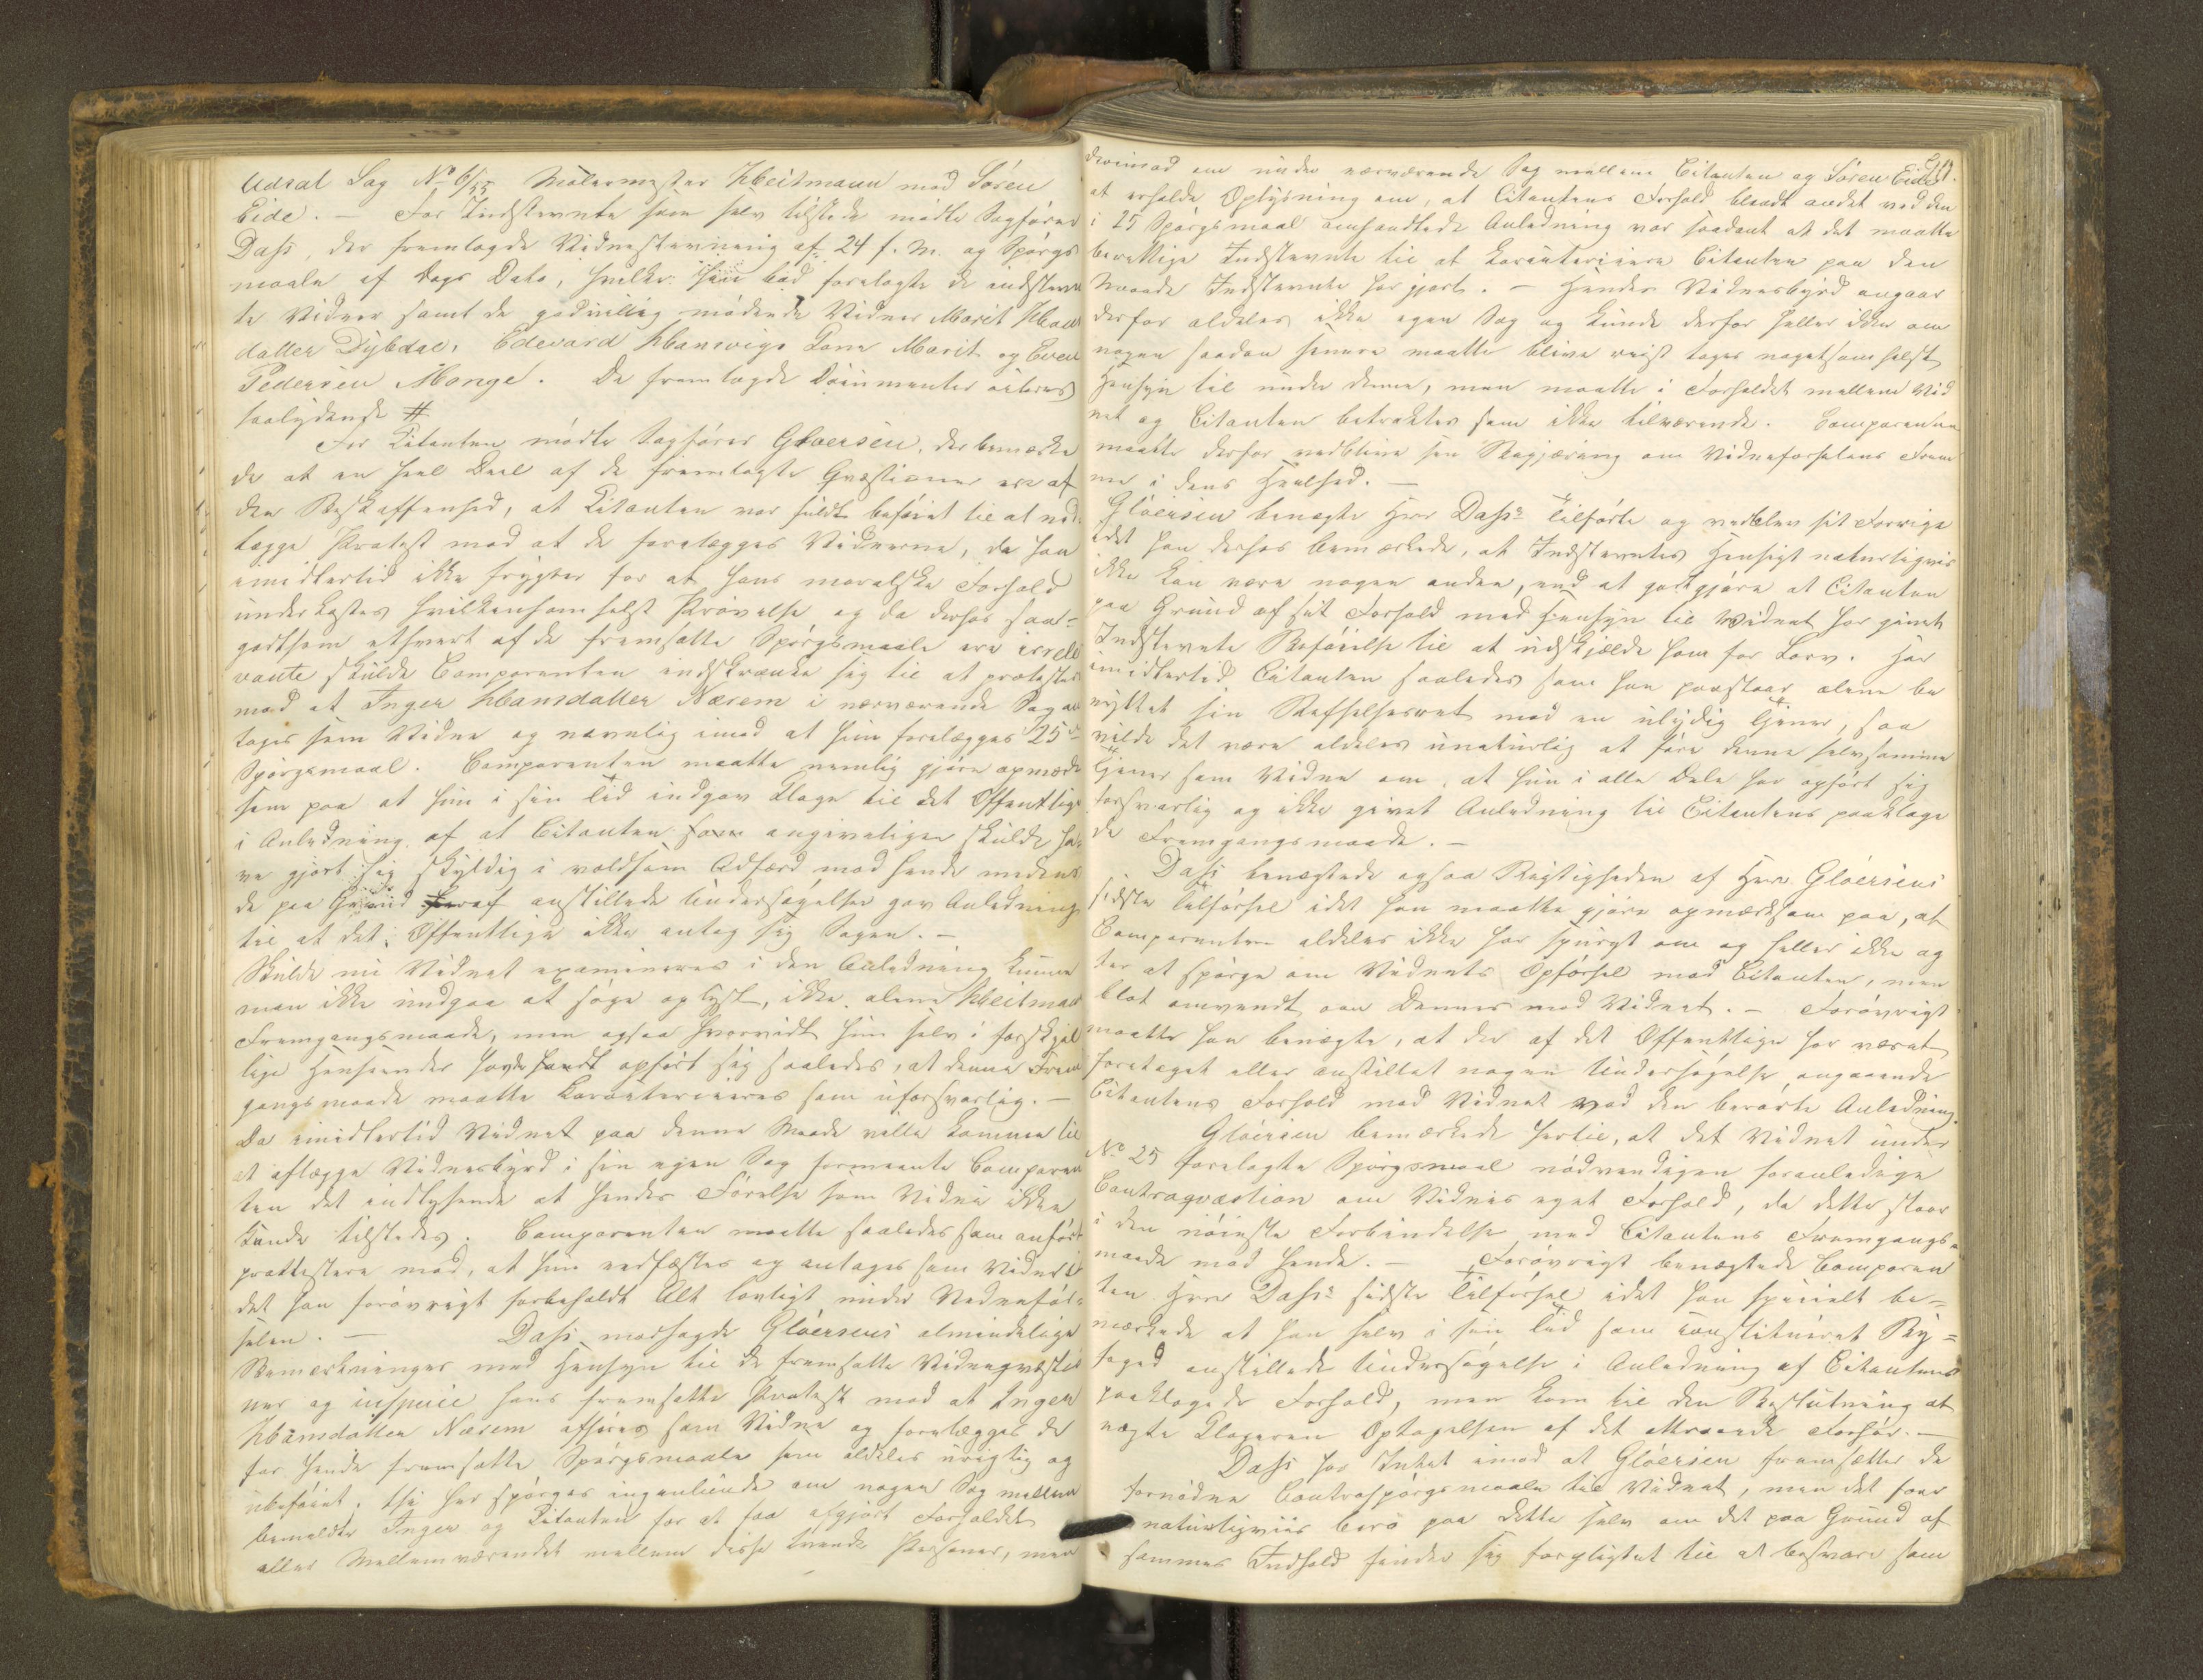 Udsat Sag No 6/55 Malermester Heitmann mod Søren
Eide. – For Indstevnte som selv tilstede mødte Sagfører
Dahs, der fremlagde Vidnestevning af 24 f. M. og Spørgs
maale af Dags Dato, hvilke han bad forelagte de indstevn
te Vidner samt de godvillig mødende Vidner Marit Hans
datter Dybdal, Edevard Hansvigs Kone Marit og Even
Pedersen Monge. De fremlagde Documenter acteres
saalydende #
For Citanten mødte Sagfører Gløersen, der bemærke
de at en heel Deel af de fremlagte Qvæstioner ere af
den Beskaffenhed, at Citanten var fuldt beføiet til at ned
lægge Protest mod at de forelægges Vidnerne, da han
imidlertid ikke frygter for at hans moralske Forhold
underkastes hvilkensomhelst Prøvelse og da derhos saa-
godtsom ethvert af de fremsatte Spørgsmaale ere irrele
vante skulde Comparenten indskrænke sig til at protestere
mod at Inger Hansdatter Nærem i nærværende Sag an
tages som Vidne og navnlig imod at hun forelægges 25de
Spørgsmaal. Comparenten maatte nemlig gjøre opmærk
som paa at hun i sin Tid indgav Klage til det Offentlige
i Anledning af at Citanten som angiveligen skulde ha-
ve gjort sig skyldig i voldsom Adfærd mod hende men den
de paa Grund heraf anstillede Undersøgelse gav Anledning
til at det Offentlige ikke antog sig Sagen. –
Skulde nu Vidnet examineres i den Anledning kunne
man ikke undgaa at søge oplyst, ikke alene Heitmans
Fremgangsmaade, men ogsaa hvorvidt hun selv i forskjel
lige Henseender havde opført sig saaledes, at denne Frem
gangsmaade maatte karakteriseres som uforsvarlig. –
Da imidlertid Vidnet paa denne Maade ville komme til
at aflægge Vidnesbyrd i sin egen Sag formeente Comparen
ten det indlysende at hendes Førelse som Vidne ikke
kunde tilstedes. Comparenten maatte saaledes som anført
protestere mod, at hun edfæstes og antages som Vidne i
det han forøvrigt forbeholdt Alt lovligt under Vidneførs
selen. – Dahs modsagde Gløersens almindelige
Bemærkninger med Hensyn til de fremsatte Vidneqvæstio
ner og inspecie hans fremsatte Protest mod at Inger
Hansdatter Nærem afhøres som Vidne og forelægges de
for hende fremsatte Spørgsmaale som aldeles urigtig og
ubeføiet, thi her spørges ingenlunde om nogen Sag mellem
bemeldte Inger og Citanten for at faa afgjort Forholdet
eller Mellemværendet mellem disse tvende Personer, men
derimod om under nærværende Sag mellem Citanten og Søren Eide
at erholde Oplysning om, at Citantens Forhold blandt andet ved den
i 25 Spørgsmaal omhandlede Anledning var saadant at det maatte
berettige Indstevnte til at karakterisere Citanten paa den
Maade Indstevnte har gjort. – Hendes Vidnesbyrd angaar
derfor aldeles ikke egen Sag og kunde derfor heller ikke om
nogen saadan senere maatte blive reist tages nogetsomhelst
Hensyn til under denne, men maatte i Forholdet mellem Vid
net og Citanten betraktes som ikke tilværende. Comparenten
maatte derfor vedblive sin Begjæring om Vidneførselens Frem
me i dens Heelhed. –
Gløersen benægte Herr Dahs's Tilførte og vedblev sit Forrige
idet han derhos bemærkede, at Indstevntes Hensigt naturligvis
ikke kan være nogen anden, end at godtgjøre at Citanten
paa Grund af sit Forhold med Hensyn til Vidnet har givet
Indstevnte Beføielse til at udskjælde ham for Torv. Har
imidlertid Citanten saaledes som han paastaar alene be
nyttet sin Refselsesret mod en ulydig Tjener, saa
vilde det være aldeles unaturlig at føre denne selvsamme
Tjener som Vidne om, at hun i alle Dele har opført sig
forsvarlig og ikke givet Anledning til Citantens paaklage
de Fremgangsmaade. –
Dahs benægtede ogsaa Rigtigheden af Herr Gløersens
sidste Tilførsel idet han maatte gjøre opmærksom paa, at
Comparenten aldeles ikke har spurgt om og heller ikke ag
ter at spørge om Vidnets Opførsel mod Citanten, men
blot omvendt om Dennes mod Vidnet. – Forøvrigt
maatte han benægte, at der af det Offentlige har været
foretaget eller anstillet nogen Undersøgelse angaaende
Citantens Forhold mod Vidnet ved den berørte Anledning.
Gløersen bemærkede hertil, at det Vidnet under
No 25 forelagte Spørgsmaal nødvendigen foranledige
Contraqvæstion om Vidnes eget Forhold, da dette staar
i den nøieste Forbindelse med Citantens Fremgangs-
maade mod hende. – Forøvrigt benægtede Comparen
ten Herr Dahs's sidste Tilførsel idet han specielt be-
mærkede at han selv i sin Tid som constitueret By-
foged anstillede Undersøgelse i Anledning af Citantens
paaklagede Forhold, men kom til den Beslutning at
nægte Klageren Optagelsen af det attraaede Forhør. –
Dahs har Intet imod at Gløersen fremsætter de
fornødne Contraspørgsmaale til Vidnet, men det faar
naturligviis bero paa dette selv om det paa Grund af
sammes Indhold finder sig forpligtet til at besvare som